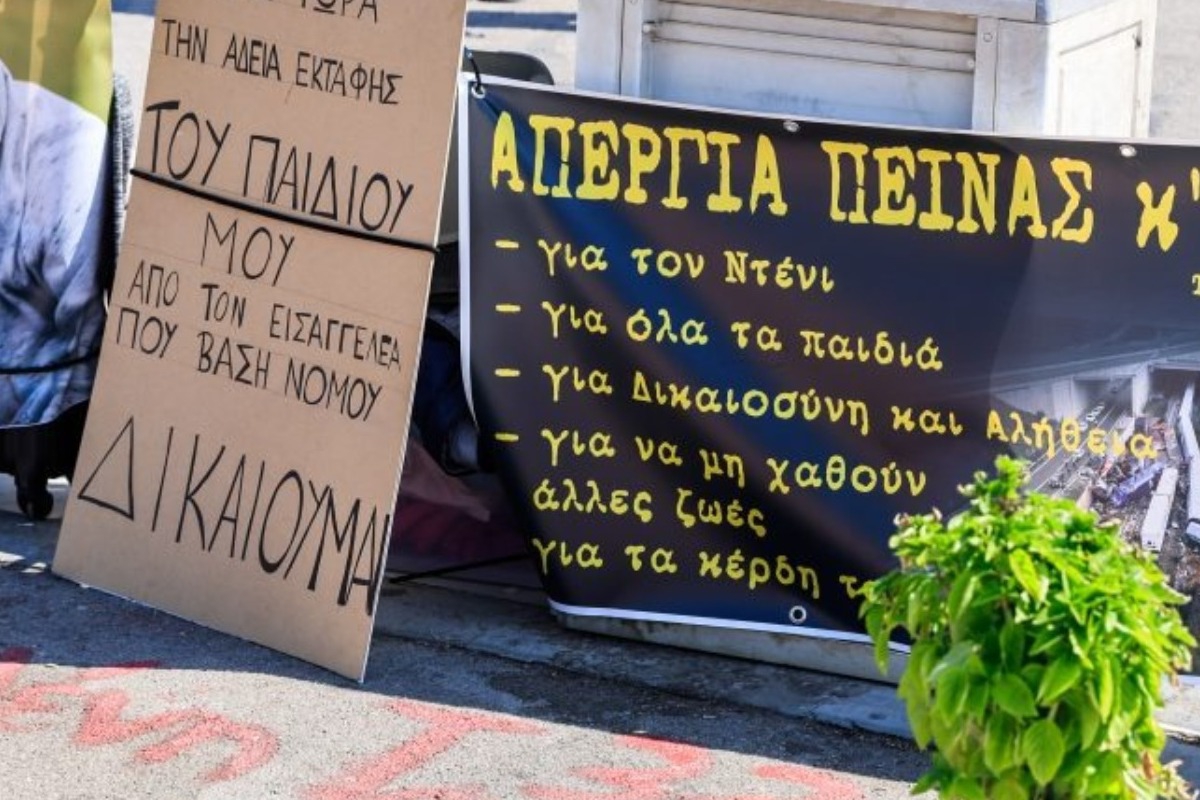 ΤΩΡΑ
ΤΗΝ ΑΔΕΙΑ ΕΚΤΑΦΗΣ
ΤΟΥ ΠΑΙΔΙΟΥ
ΜΟΥ
ΑΠΟ ΤΟΝ ΕΙΣΑΓΓΕΛΕΑ
ΠΟΥ ΒΑΣΗ ΝΟΜΟΥ
ΔΙΚΑΙΟΥΜΑΙ
ΑΠΕΡΓΙΑ ΠΕΙΝΑΣ κ'
- για τον Ντένι
- για όλα τα παιδιά
- για Δικαιοσύνη και Αλήθεια
- για να μη χαθούν
άλλες ζωές
για τα κέρδη